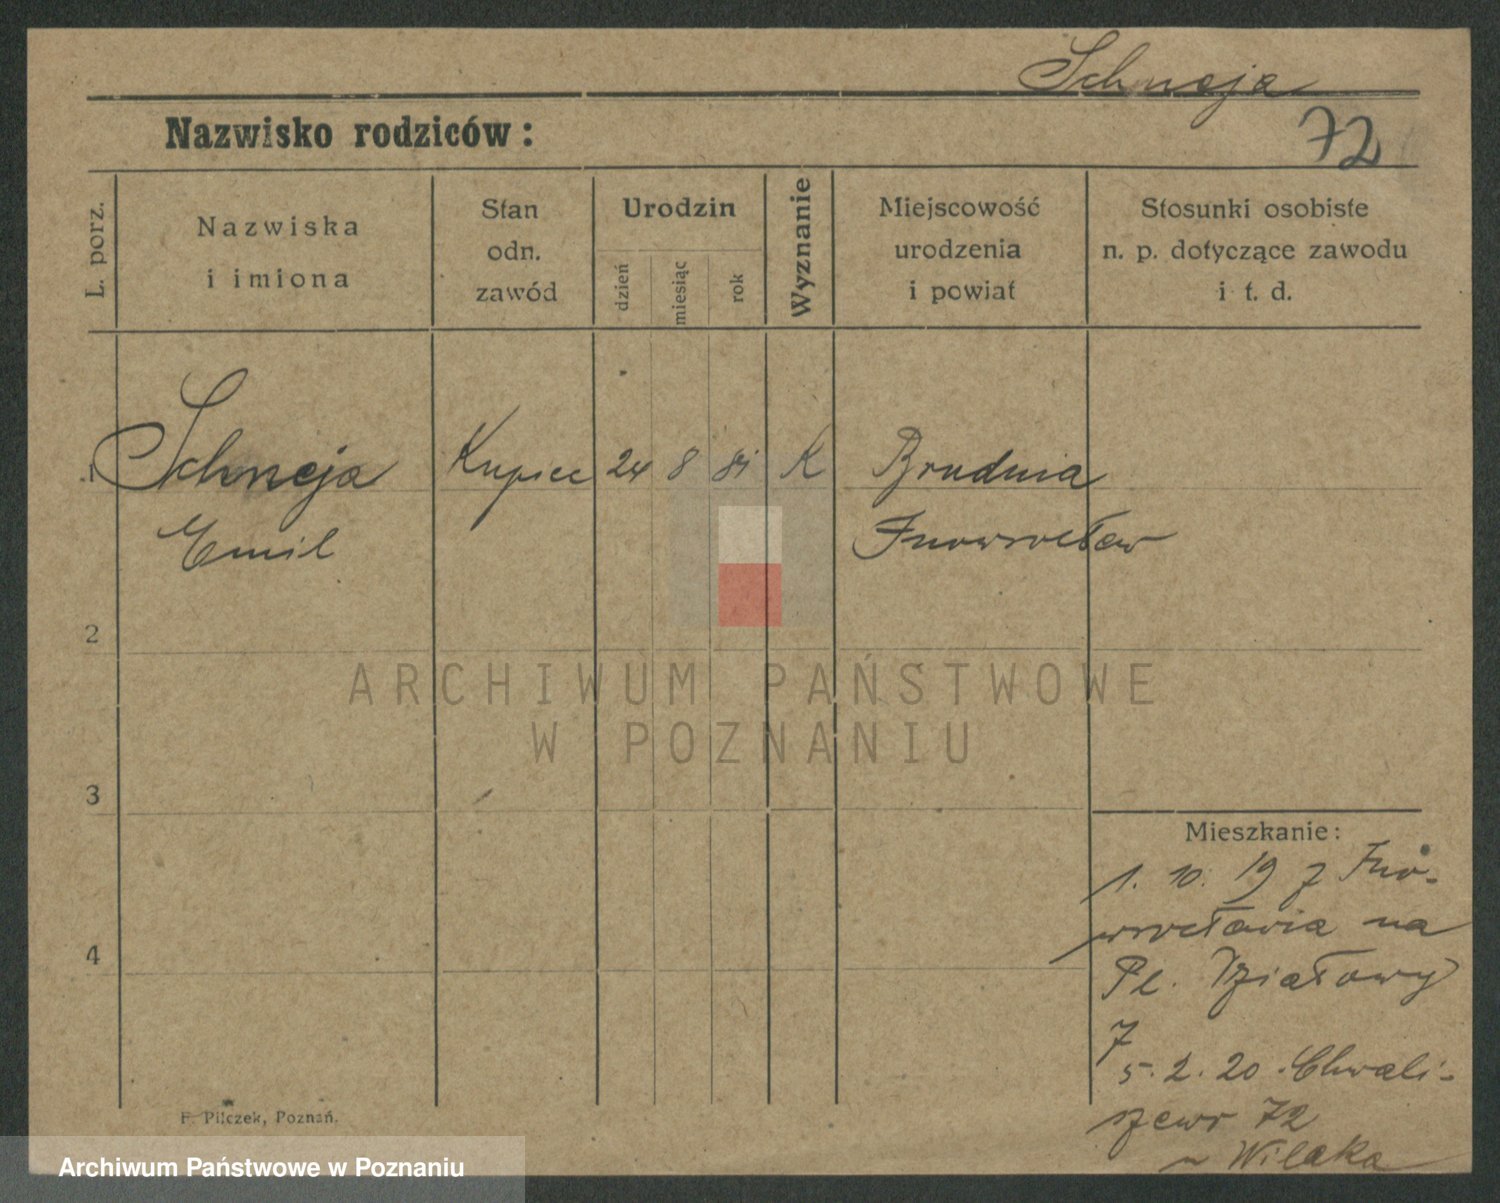 Schneja
Nazwisko rodziców:
72
L. porz.
Nazwiska
i imiona
Stan
odn.
zawód
Urodzin
dzień
miesiąc
rok
Wyznanie
Miejscowość
urodzenia
i powiat
Stosunki osobiste
n. p. dotyczące zawodu
i t. d.
1
Schneja
Kupiec
24
8
81
K
Brudnia
Emil
Inowrocław
2
ARCHIWUM PAŃSTWOWE
W POZNANIU
3
4
Mieszkanie:
1. 10. 19 z Ino-
wrocławia na
Pl. Działowy
7
5. 2. 20. Chwali-
szewo 72
u Wilaka
F. Pilczek, Poznań.
Archiwum Państwowe w Poznaniu